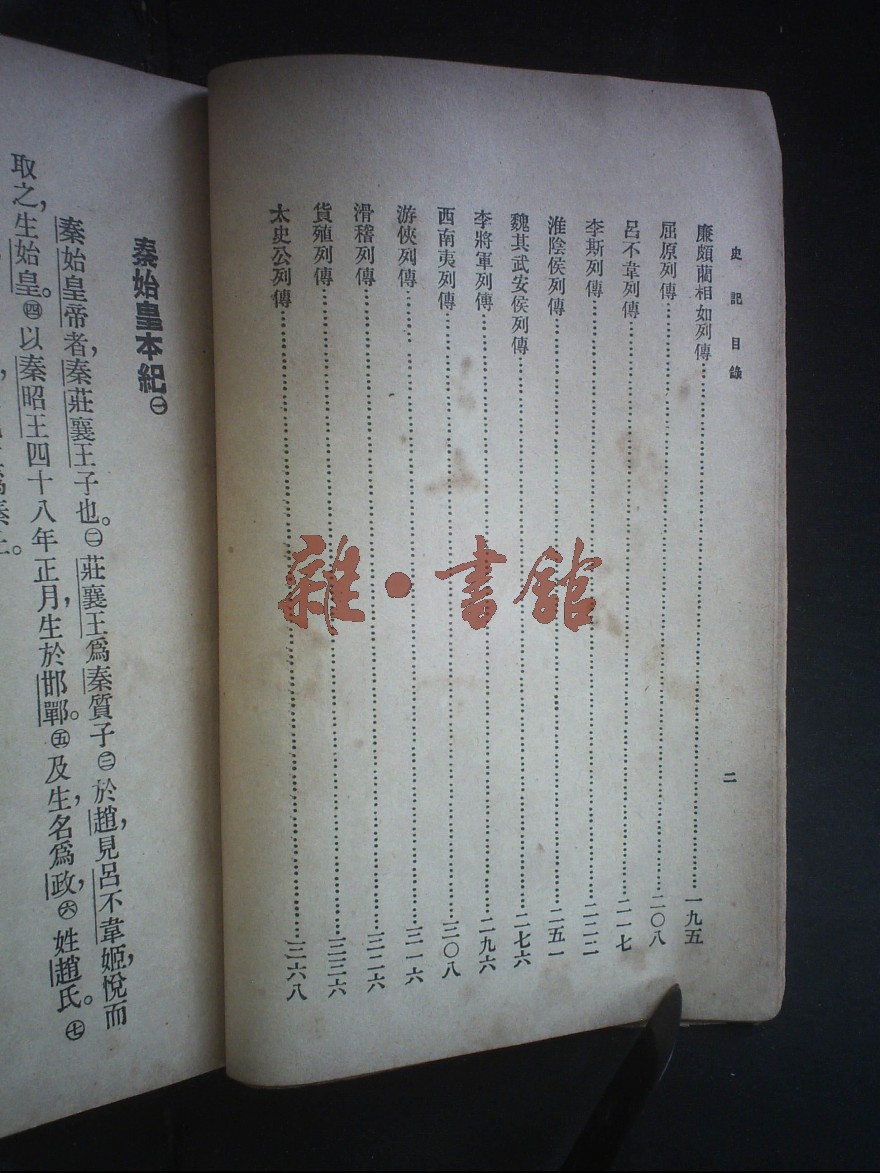 史記目錄
二
廉頗藺相如列傳……一九五
屈原列傳……二〇八
呂不韋列傳……二一七
李斯列傳……二二二
淮陰侯列傳……二五一
魏其武安侯列傳……二七六
李將軍列傳……二九六
西南夷列傳……三〇八
游俠列傳……三一六
滑稽列傳……三二六
貨殖列傳……三三六
太史公列傳……三六八
雜·書館
秦始皇本紀㊀
秦始皇帝者，秦莊襄王子也。㊁莊襄王爲秦質子㊂於趙，見呂不韋姬，悅而
取之，生始皇。㊃以秦昭王四十八年正月，生於邯鄲。㊄及生，名爲政，㊅姓趙氏。㊆